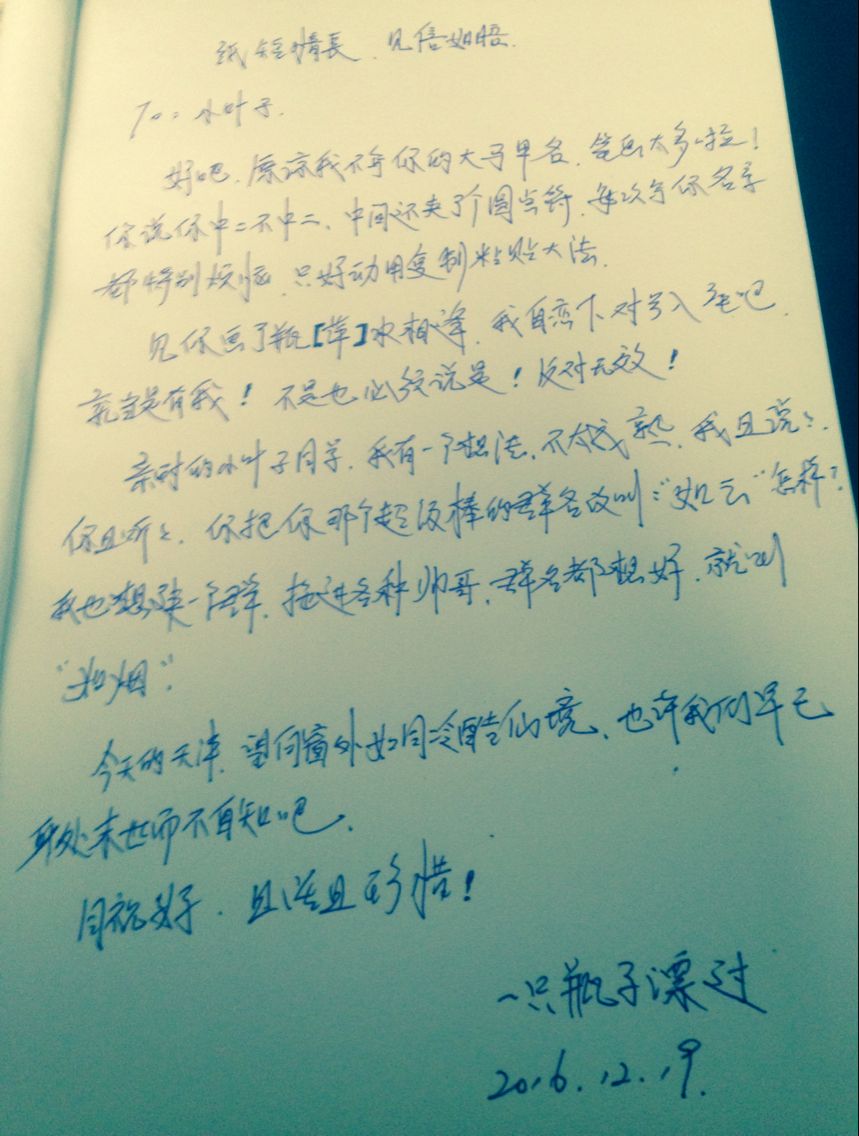 纸短情長、见信如晤.
To: 小叶子.
好吧、原谅我不写你的大马甲名、笔画太多啦！
你说你中二不中二、中间还夹了个圆点符、每次写你名字
都特别烦恼、只好动用复制粘贴大法.
见你画了瓶【萍】水相逢、我自恋下对号入座吧、
就当是有我！不是也必须说是！反对无效！
亲爱的小叶子同学、我有一个想法、不太成熟、我且说之、
你且听之、你把你那个超级棒的群名改叫:“如云”怎样？
我也想建一个群、拖进各种帅哥、群名都想好、就叫
“如烟”.
今天的天津、望向窗外如同冷酷仙境、也许我们早已
身处末世而不自知吧、
同祝好、且活且珍惜！
一只瓶子漂过
2016.12.19.